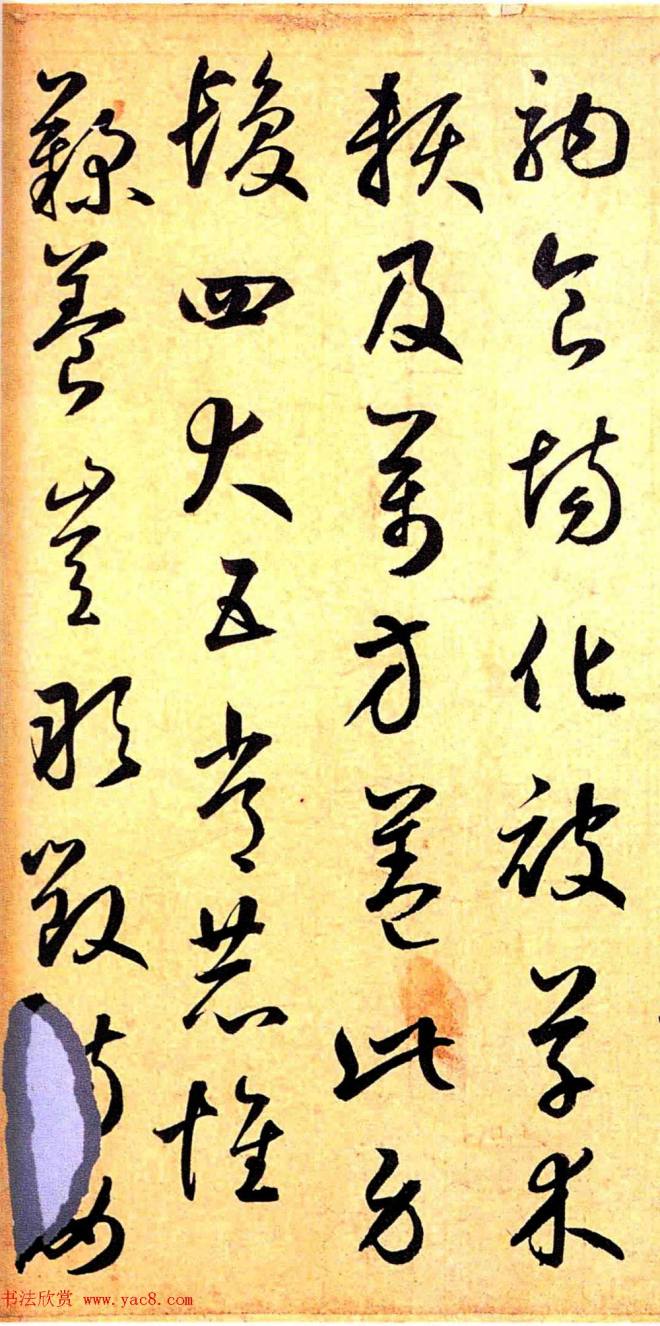 駒食場化被草木
賴及萬方蓋此身
髮四大五常恭惟
鞠養豈敢毀傷女
书法欣赏 www.yac8.com